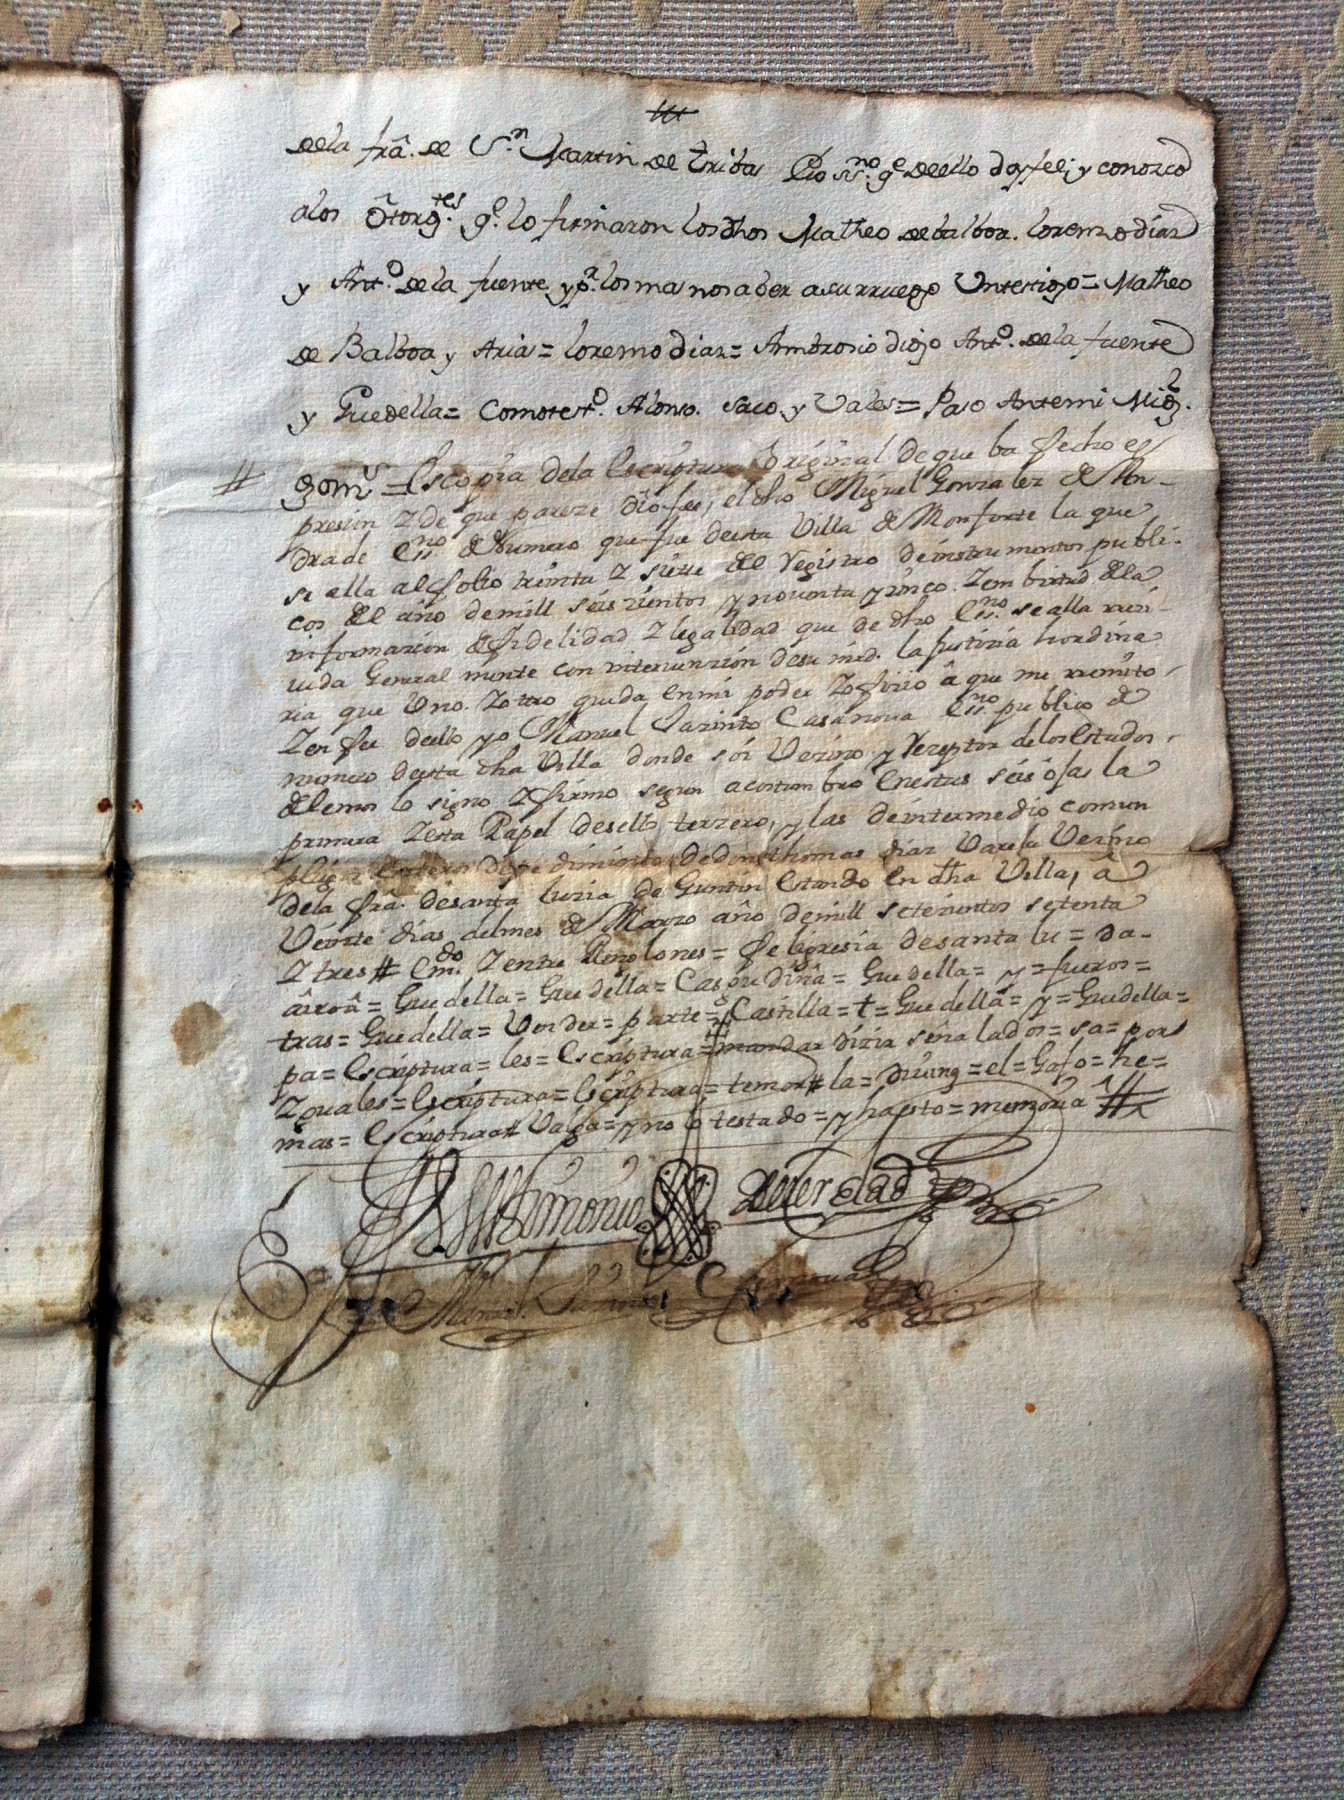 dela frâ. de Sn. Martin de tribas Eyo ssno. qe deello doy fee; y conozco
alos ôtorgtes. qe. lo firmaron los dhos Matheo de balboa. lorenzo diaz
y Anto. de la fuente y pr. los mas no saber a su rruego Un testigo = Matheo
de Balboa y Arias = lorenzo diaz = Ambrosio diojo Anto. de la fuente
y Guedella = Como testo. Alonso. saco y Vales = Paso Antemi Migl.
# gomz = Es copia dela Escriptura Original de que ba fecho es
presion Z de que pareze dio fee, el dho Miguel Gonzalez de An-
drade Essno de Numero que fue deesta Villa de Monforte la que
se alla al folio treinta Z siette del Registro de instrumentos publi-
cos del año de mill seis zientos y noventa y zinco. Z em birtud dela
informazion de fidelidad Z legalidad que de dho Essno. se alla rrezi-
uida General mente con intervenzion de su mrd. la Justizia hordina
ria que Uno. Z otro queda en mi poder Z ofizio â que me rremito
Z en fee dello yo Manuel Jazinto Casanova Essno publico de
numero deesta dha Villa donde sói Vezino y Rezeptor delos estados
de lemos lo signo Z firmo segun acostumbro En estas seis ojas la
primera Z esta Papel de sello terzero, y las de intermedio comun
pliego entero de pedimiento de Don thomas diaz Varela Vezino
dela frâ. de santa luzia de Guntin estando en dha Villa, â
Veinte dias del mes de Marzo año de mill setezientos setenta
Z tres # Emdo. Z entre Renglones = feligresia de santa lu = da-
= Guedella = Guedella = = Guedella = y = fueros =
tras = Guedella = Vender = parte = Castilla = t = Guedella = y = Guedella =
pa = Escriptura = les = Escriptura = mandar dizir señalados = sa = por
Z quales = Escriptura = Escriptura = temor # la = = el = Gafo = he =
mas = Escriptura # Valga = y no lo testado = y hasto = memoria
En testimonio de verdad
Manl. Jazinto Casanova